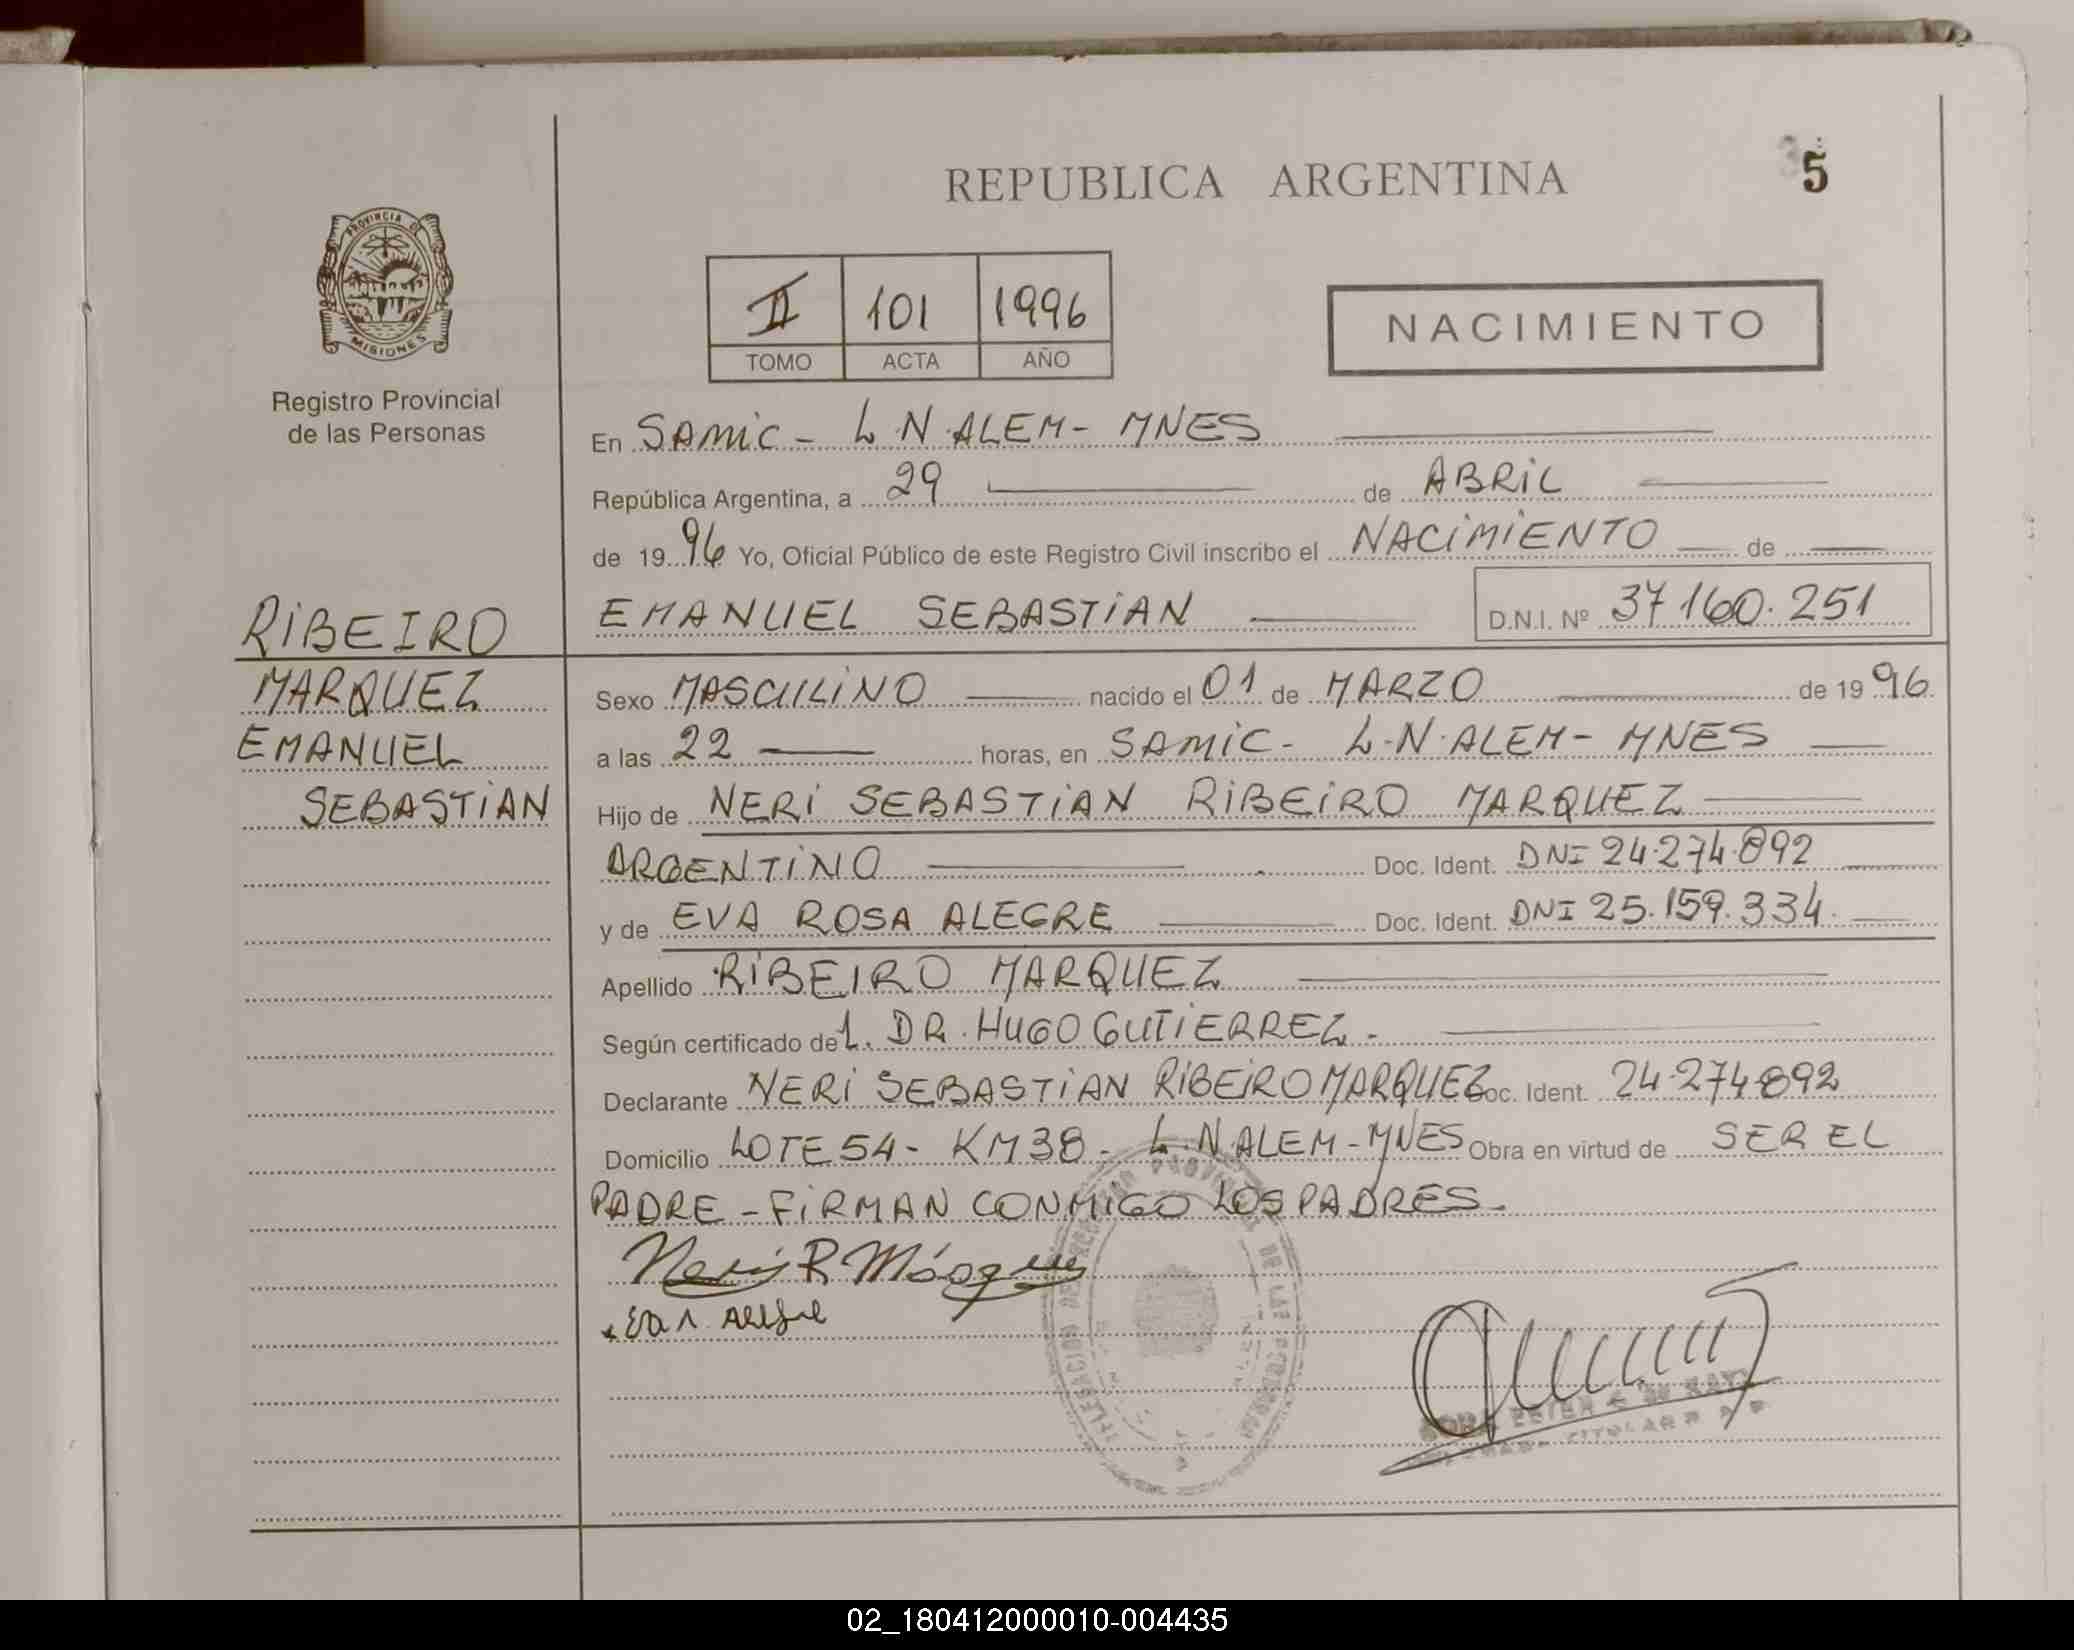 REPUBLICA ARGENTINA
5
PROVINCIA DE
MISIONES
Registro Provincial
de las Personas
II 101 1996
TOMO ACTA AÑO
NACIMIENTO
En SAMIC - L.N.ALEM - MNES
República Argentina, a 29 de ABRIL
de 1996 Yo, Oficial Público de este Registro Civil inscribo el NACIMIENTO de
EMANUEL SEBASTIAN D.N.I. Nº 37160.251
RIBEIRO
MARQUEZ
EMANUEL
SEBASTIAN
Sexo MASCULINO nacido el 01 de MARZO de 1996
a las 22 horas, en SAMIC - L.N.ALEM - MNES
Hijo de NERI SEBASTIAN RIBEIRO MARQUEZ
ARGENTINO Doc. Ident. DNI 24.274.892
y de EVA ROSA ALEGRE Doc. Ident. DNI 25.159.334.
Apellido RIBEIRO MARQUEZ
Según certificado de L. DR. HUGO GUTIERREZ.
Declarante NERI SEBASTIAN RIBEIRO MARQUEZ Doc. Ident. 24.274.892
Domicilio LOTE 54 - KM 38 - L.N.ALEM - MNES Obra en virtud de SER EL
PADRE - FIRMAN CONMIGO LOS PADRES.
02_180412000010-004435